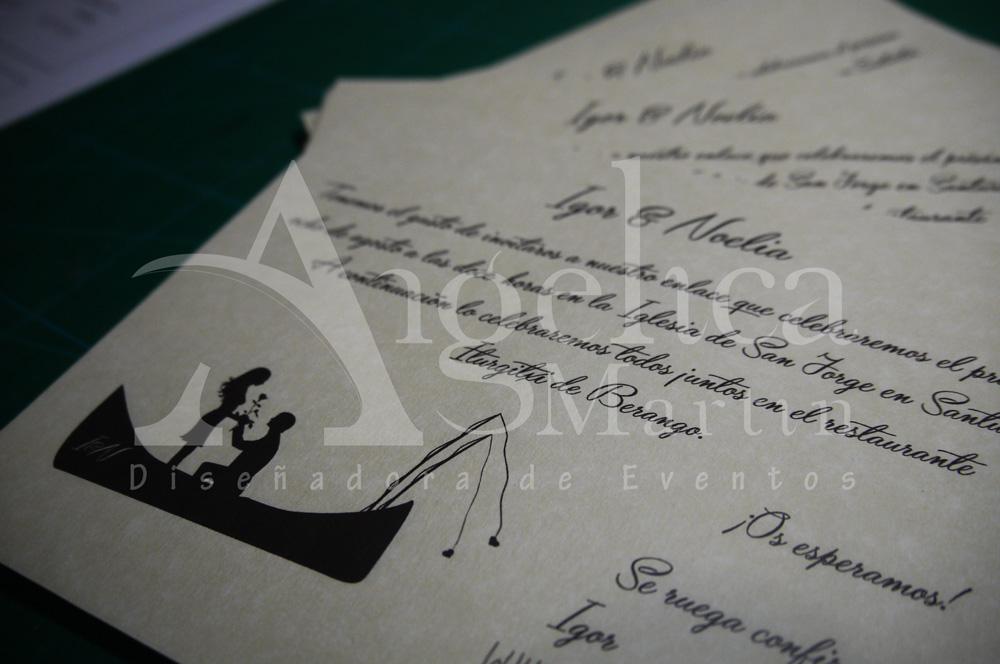 Igor & Noelia
Igor & Noelia
nuestro enlace que celebraremos el
de San Jorge en
Igor & Noelia
Tenemos el gusto de invitaros a nuestro enlace que celebraremos el
de agosto a las doce horas en la Iglesia de San Jorge en
A continuación lo celebraremos todos juntos en el restaurante
Iturgitxi de Berango.
¡Os esperamos!
Se ruega
Igor
Angelica
S Martin
Diseñadora de Eventos